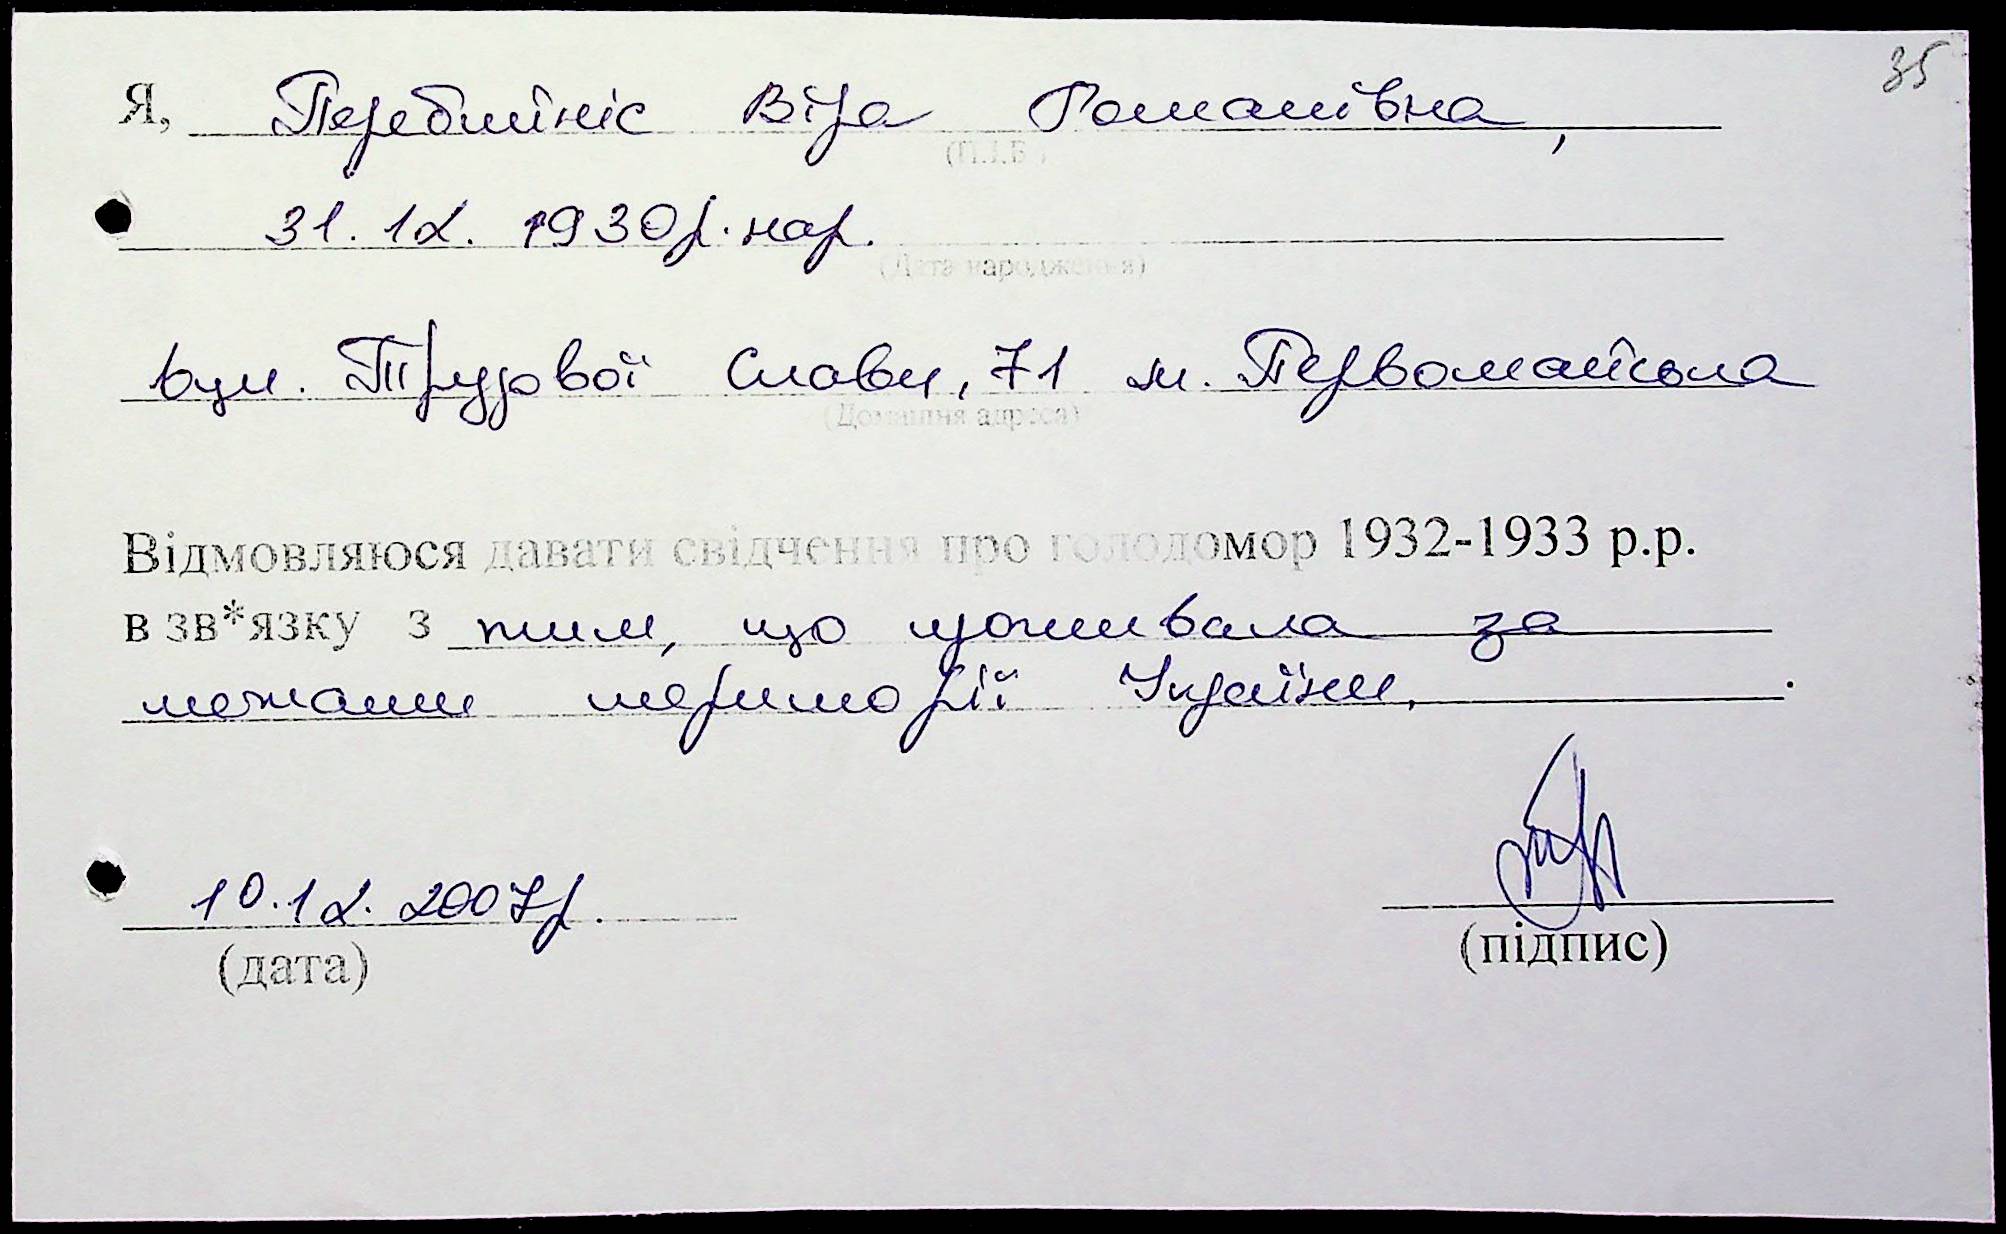 35
Я, Перебийніс Віра Романівна,
(П.І.Б.)
31.12.1930р.нар.
(Дата народження)
вул. Трудової Слави, 71 м. Первомайська
(Домашня адреса)
Відмовляюся давати свідчення про голодомор 1932-1933 р.р.
в зв*язку з тим, що проживала за
межами території України.
10.12.2007р.
(дата)
(підпис)